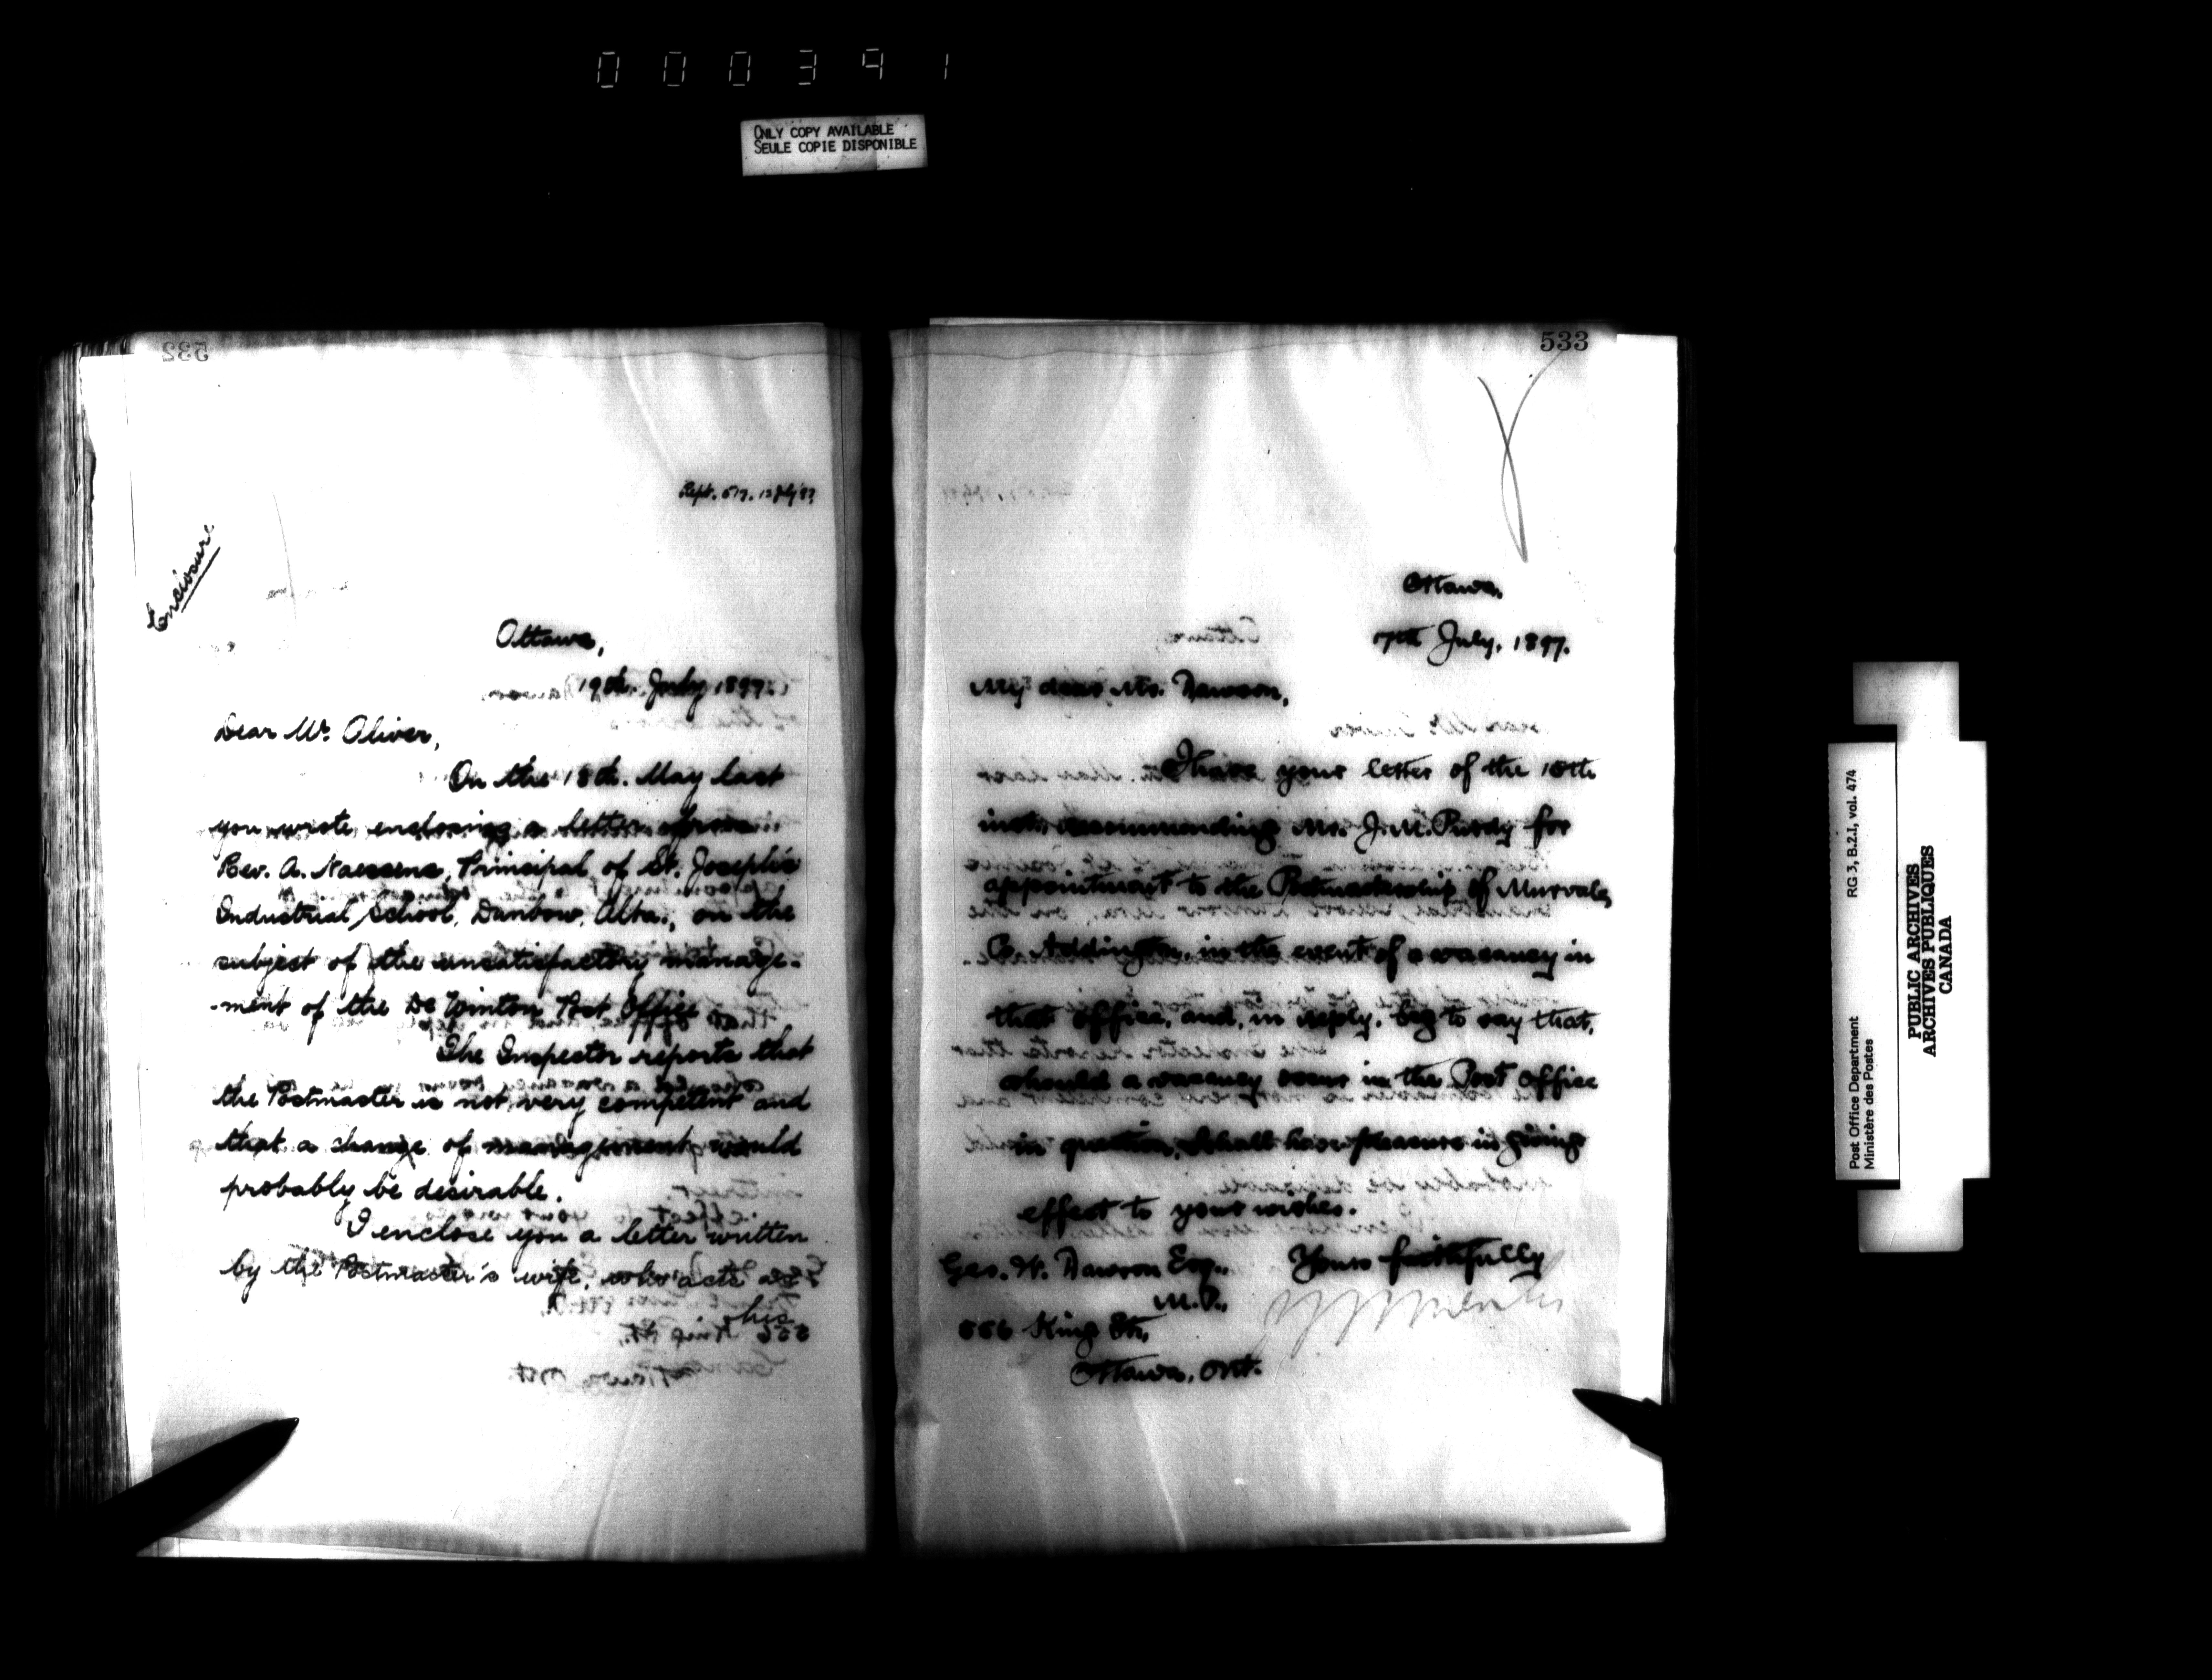 000391
ONLY COPY AVAILABLE
SEULE COPIE DISPONIBLE
532
Enclosure
Ottawa,
19th. July 1897.
Dear Mr. Oliver,
On the 18th. May last
you wrote, enclosing a letter from
Rev. A. Naessens, Principal of St. Joseph's
Industrial School, Dunbow, Alta., on the
subject of the unsatisfactory manage-
-ment of the De Winton Post Office.
The Inspector reports that
the Postmaster is not very competent and
that a change of management would
probably be desirable.
I enclose you a letter written
by the Postmaster's wife, who acts as
his
533
Ottawa,
17th July, 1897.
My dear Mr. Dawson,
I have your letter of the 15th
inst. recommending Mr. J. M. Purdy for
appointment to the Postmastership of Murvale,
Co. Addington, in the event of a vacancy in
that office, and, in reply, beg to say that,
should a vacancy occur in the Post Office
in question, I shall have pleasure in giving
effect to your wishes.
Geo. W. Dawson Esq., Yours faithfully
M.P.,
556 King St.,
Ottawa, Ont.
Post Office Department RG 3, B.2.I, vol. 474
Ministère des Postes
PUBLIC ARCHIVES
ARCHIVES PUBLIQUES
CANADA